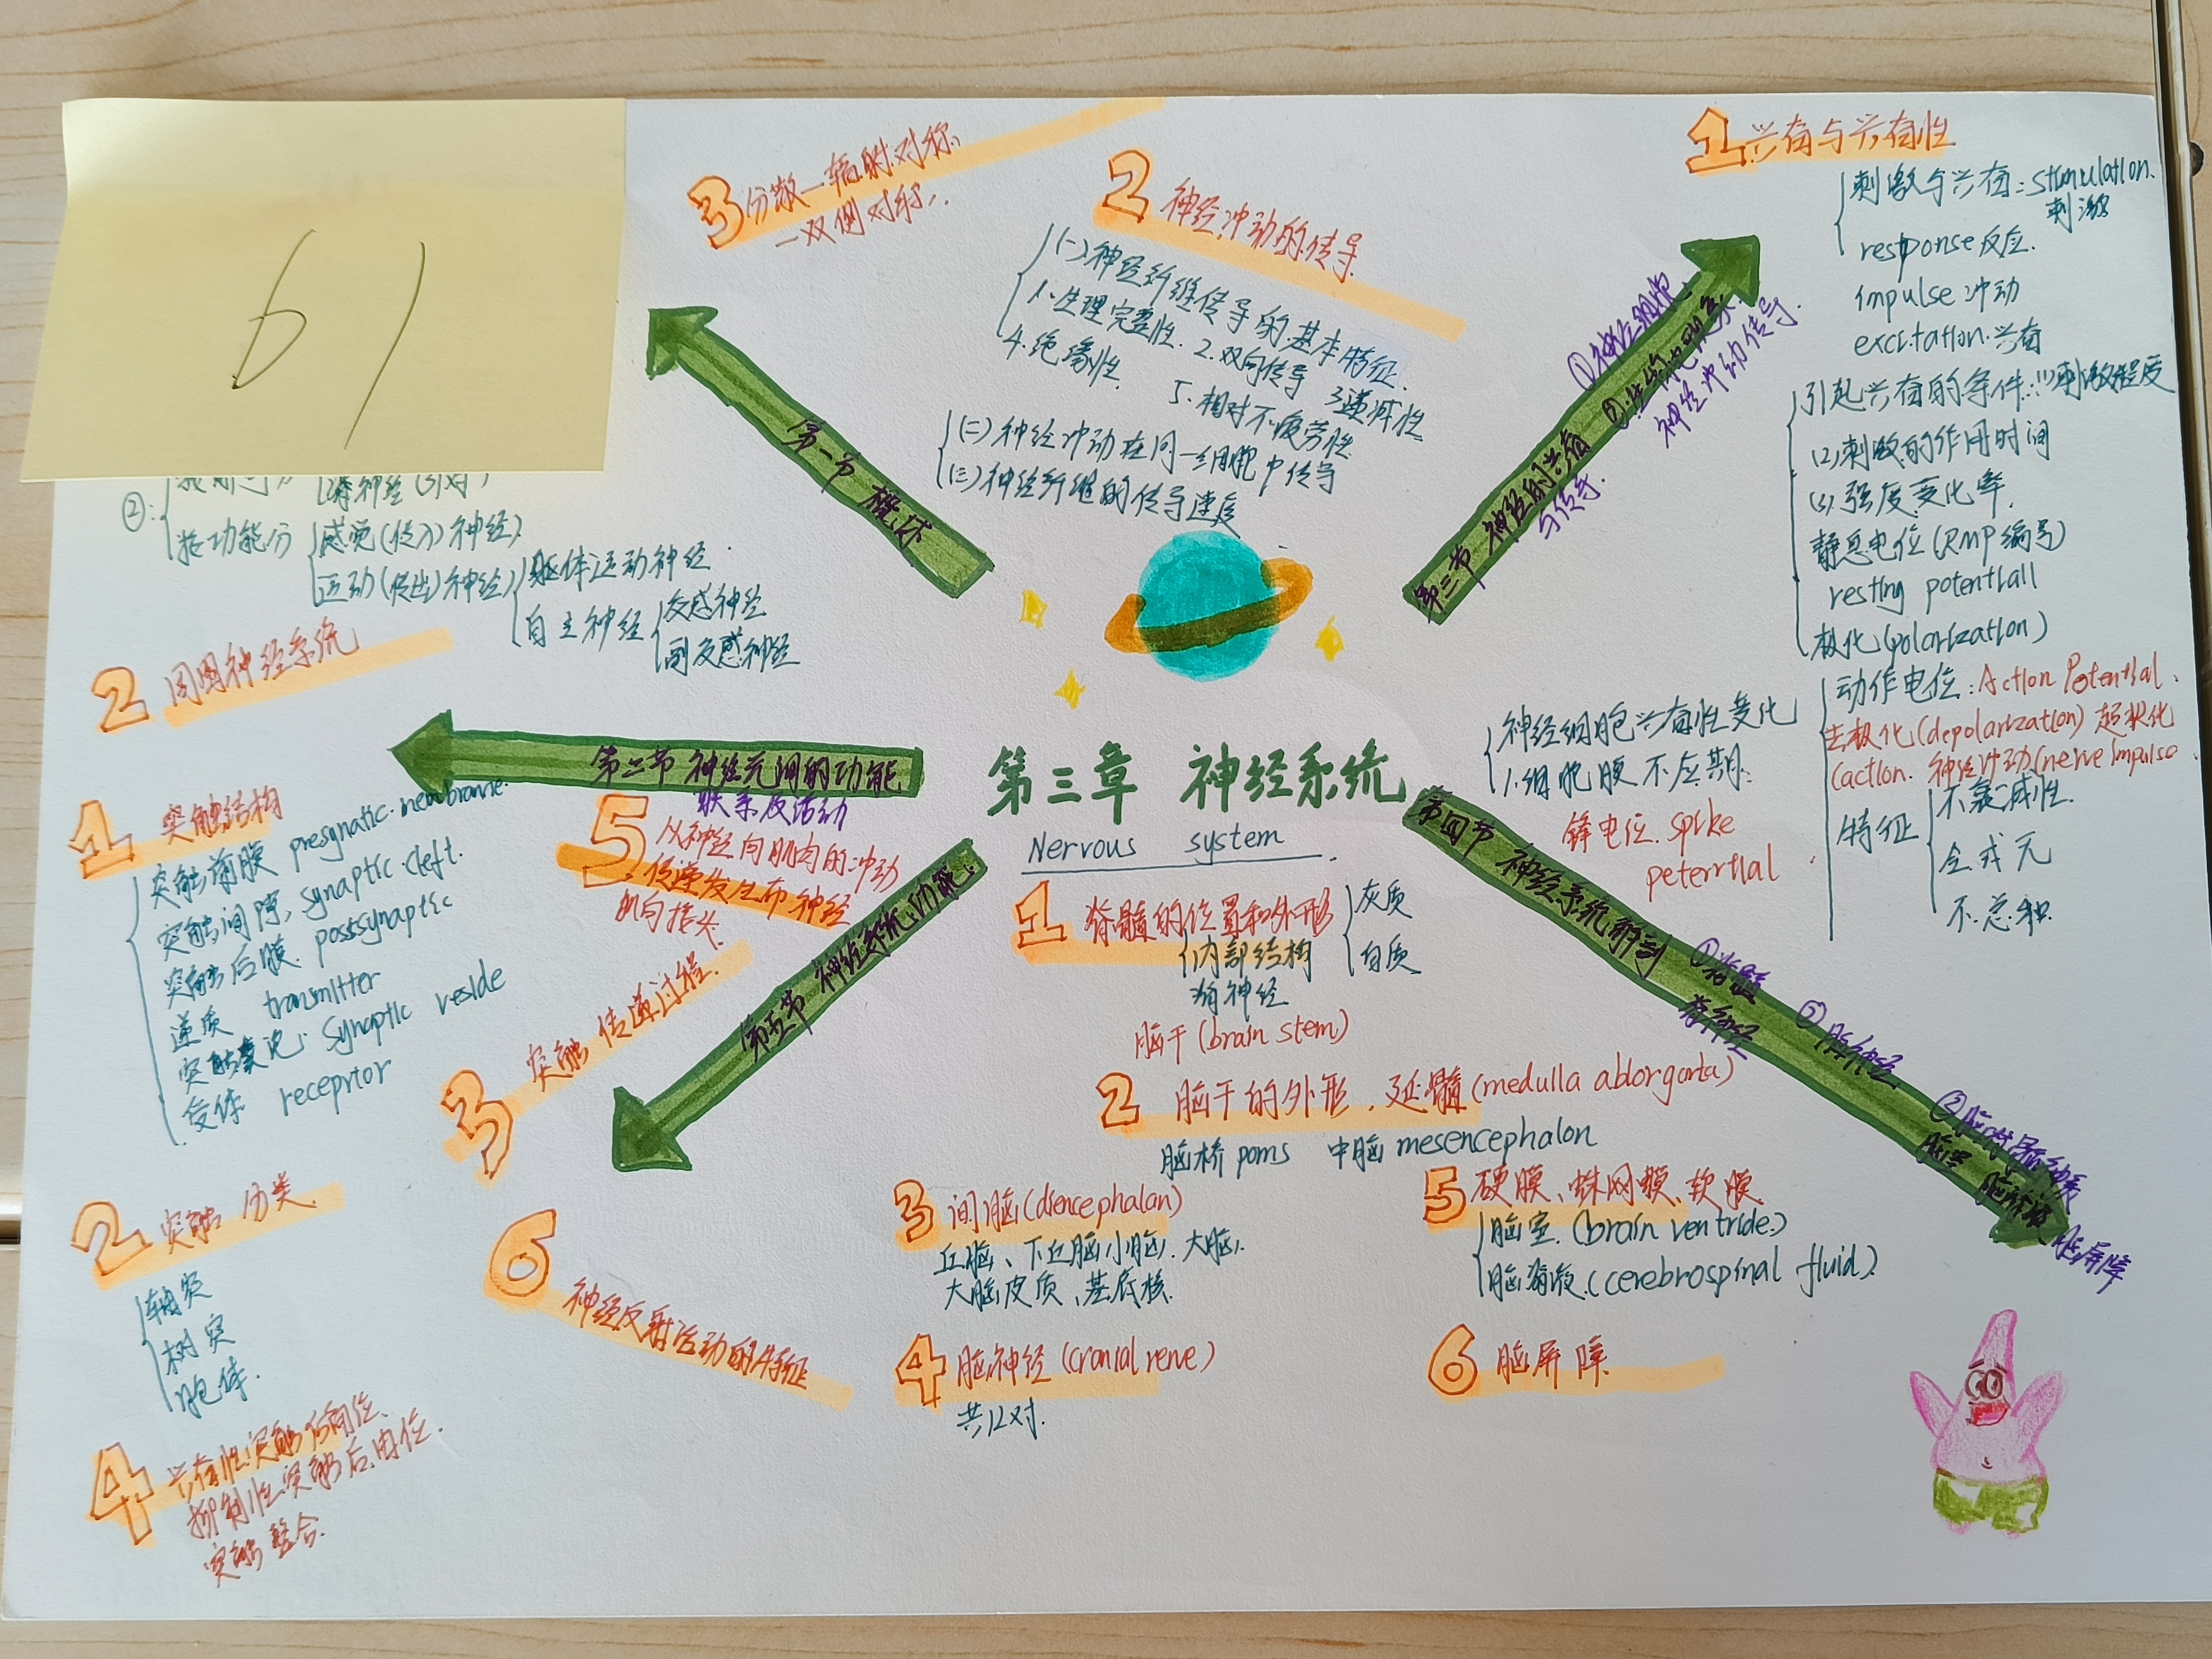 61
3 分散—辐射对称、
—双侧对称、
2 神经冲动的传导
(一)神经纤维传导的基本特征.
1.生理完整性. 2.双向传导 3递减性
4.绝缘性 5.相对不疲劳性
(二)神经冲动在同一细胞中传导
(三)神经纤维的传导速度
1 兴奋与兴奋性
刺激与兴奋: stimulation.
刺激
response 反应.
impulse 冲动
excitation.兴奋
引起兴奋的条件:(1)刺激强度
(2)刺激的作用时间
(3).强度变化率.
静息电位(RMP编号)
resting potentiall
极化(polarization)
动作电位:Action Potential.
去极化(depolarization) 超极化
(action. 神经冲动(nerve impulse
特征
不衰减性.
全或无
不总和.
神经细胞兴奋性变化
1.细胞膜不应期:
锋电位. spike
peterrtial
第三节 神经的兴奋
与传导.
①神经细胞
神经冲动传导.
第一节 概述
②:
按功能分
感觉(传入)神经)
运动(传出)神经)
躯体运动神经.
自主神经
交感神经
副交感神经
2 周围神经系统
第二节 神经元间的功能
联系及活动
1 突触结构
突触前膜 presynatic.nembrane.
突触间隙, synaptic.cleft.
突触后膜. postsynaptic
递质 transmitter
突触囊泡: Synaptic veside
受体 receprtor
2 突触 分类.
轴突
树突
胞体.
3 突触 传递过程.
4 兴奋性.突触后电位、
抑制性突触后电位.
突触整合.
5 从神经向肌肉的冲动
传递发生布神经
肌肉接头.
6 神经反射活动的特征
第三章 神经系统
Nervous system.
第五节 神经系统功能.
第四节 神经系统解剖
①脊髓
脊神经
脑屏障
1 脊髓的位置和外形
内部结构
脊神经
灰质
白质
脑干(brain stem)
2 脑干的外形. 延髓(medulla ablorgarta)
脑桥 poms 中脑 mesencephalon
3 间脑(diencephalan)
丘脑、下丘脑小脑. 大脑.
大脑皮质、基底核.
4 脑神经 (cranial rerve)
共12对.
5 硬膜、蛛网膜、软膜.
脑室. (brain ventride.)
脑脊液.(cerebrospinal fluid).
6 脑屏障.